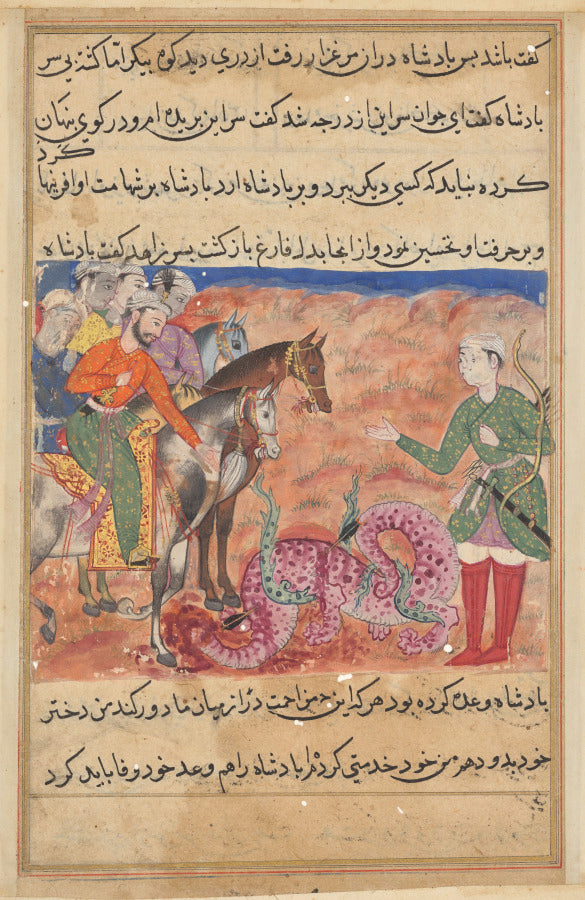 کفت باشد بسر بادشاه دران مرغزار رفت ازدری دید کوه بیکر اما کشته بی سر
بادشاه کفت ای جوان سر این ازدر چه شد کفت سر این بریده ام و در کوی پنهان
کرد
کرده نباید که کسی دیکر ببرد و بر بادشاه ارد بادشاه بر شهامت او افرینها
و بر حرفت او تحسین نمود و از انجا بدل فارغ باز کشت بسر زاهد کفت بادشاه
بادشاه وعده کرده بود هر که این زحمت را از میان ما دور کند من دختر
خود بدو دهم من خود خدمتی کردم بادشاه را هم وعد خود وفا باید کرد